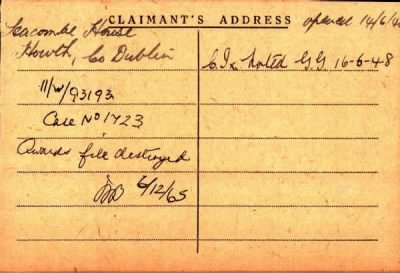 CLAIMANT'S ADDRESS
Seacombe House
Howth, Co Dublin
11/W/93193
Case No 1723
Awards file destroyed
6/12/65
opened 14/6/48
Noted G.G 16-6-48